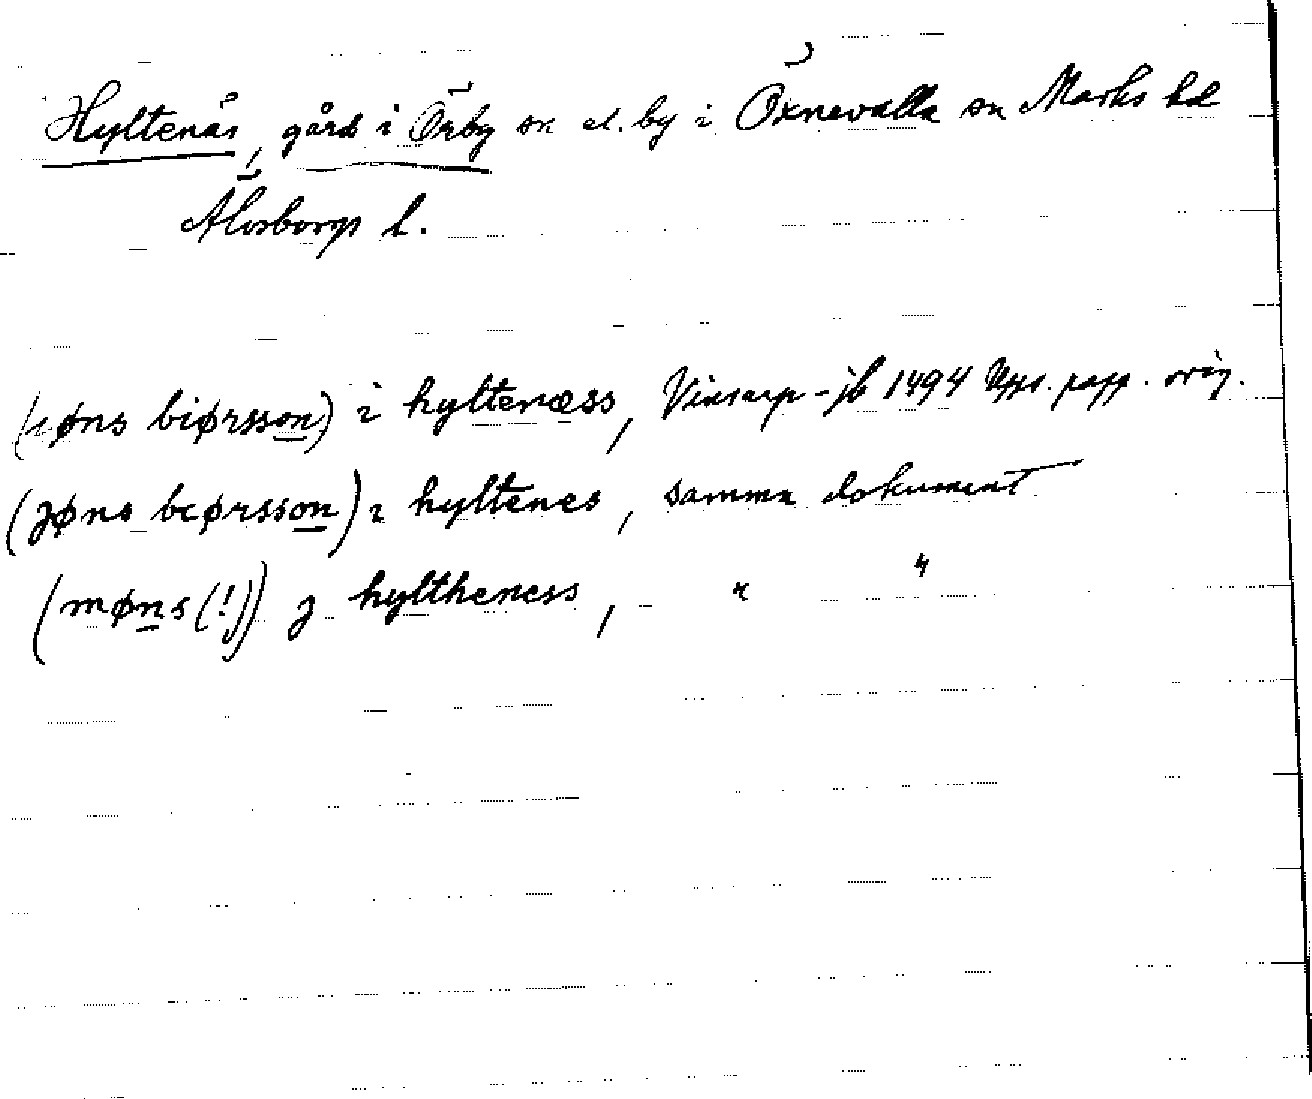 Hyltenäs, gård i Örby sn el. by i Öxnevalla sn Marks hd
Älvsborgs l.
(iøns biørsson) i hyltenæss, Vinsarp-jb 1494 Upps. papp. orig.
(jøns biørsson) i hyltenes, samma dokument
(møns(!)) j hyltheness, " "